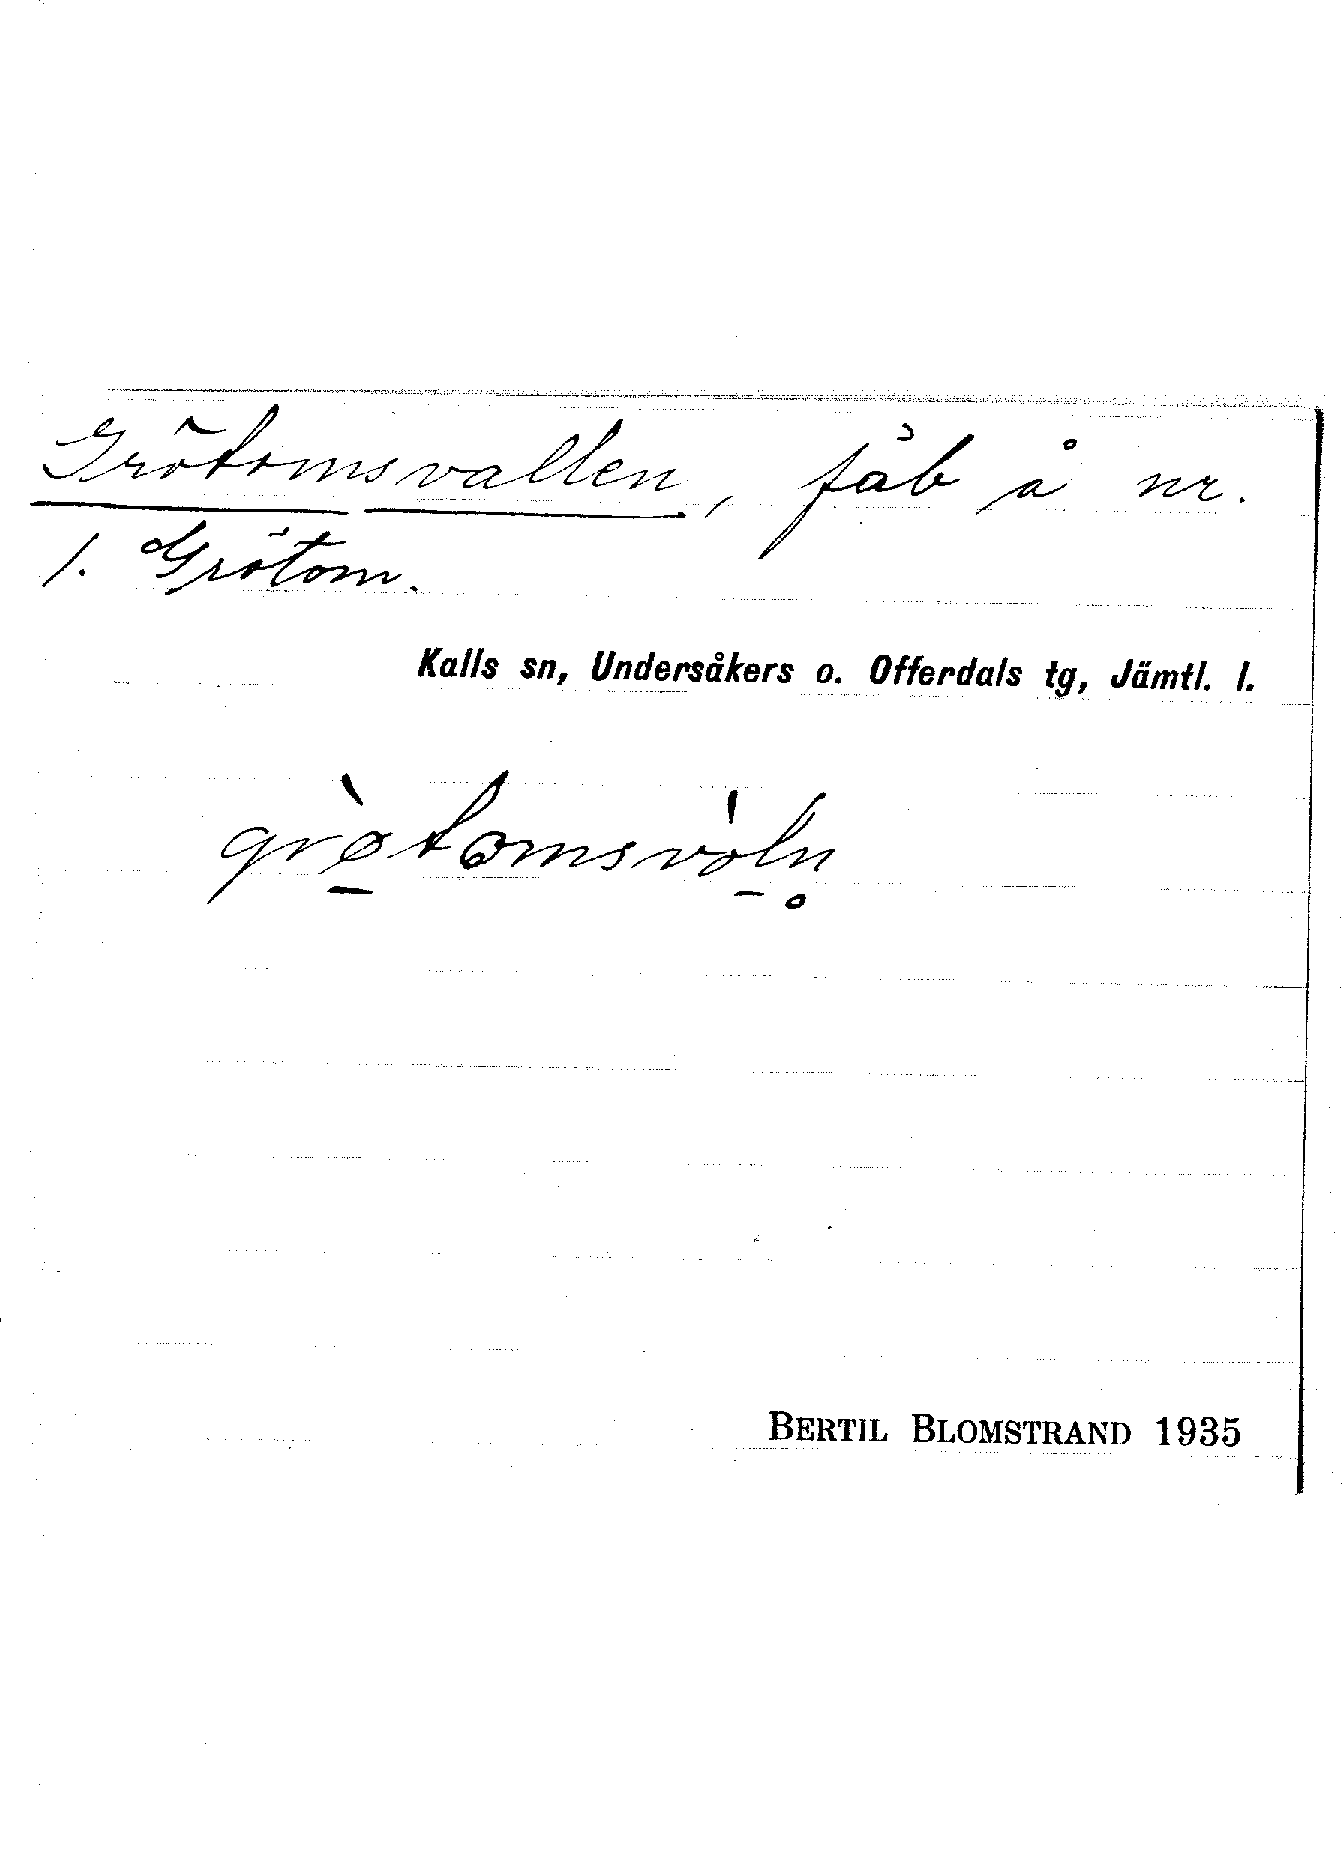 Grötomsvallen, fäb å nr.
1. Grötom.
Kalls sn, Undersåkers o. Offerdals tg, Jämtl. l.
grø̱̀tomsvö̱́ln̥
BERTIL BLOMSTRAND 1935